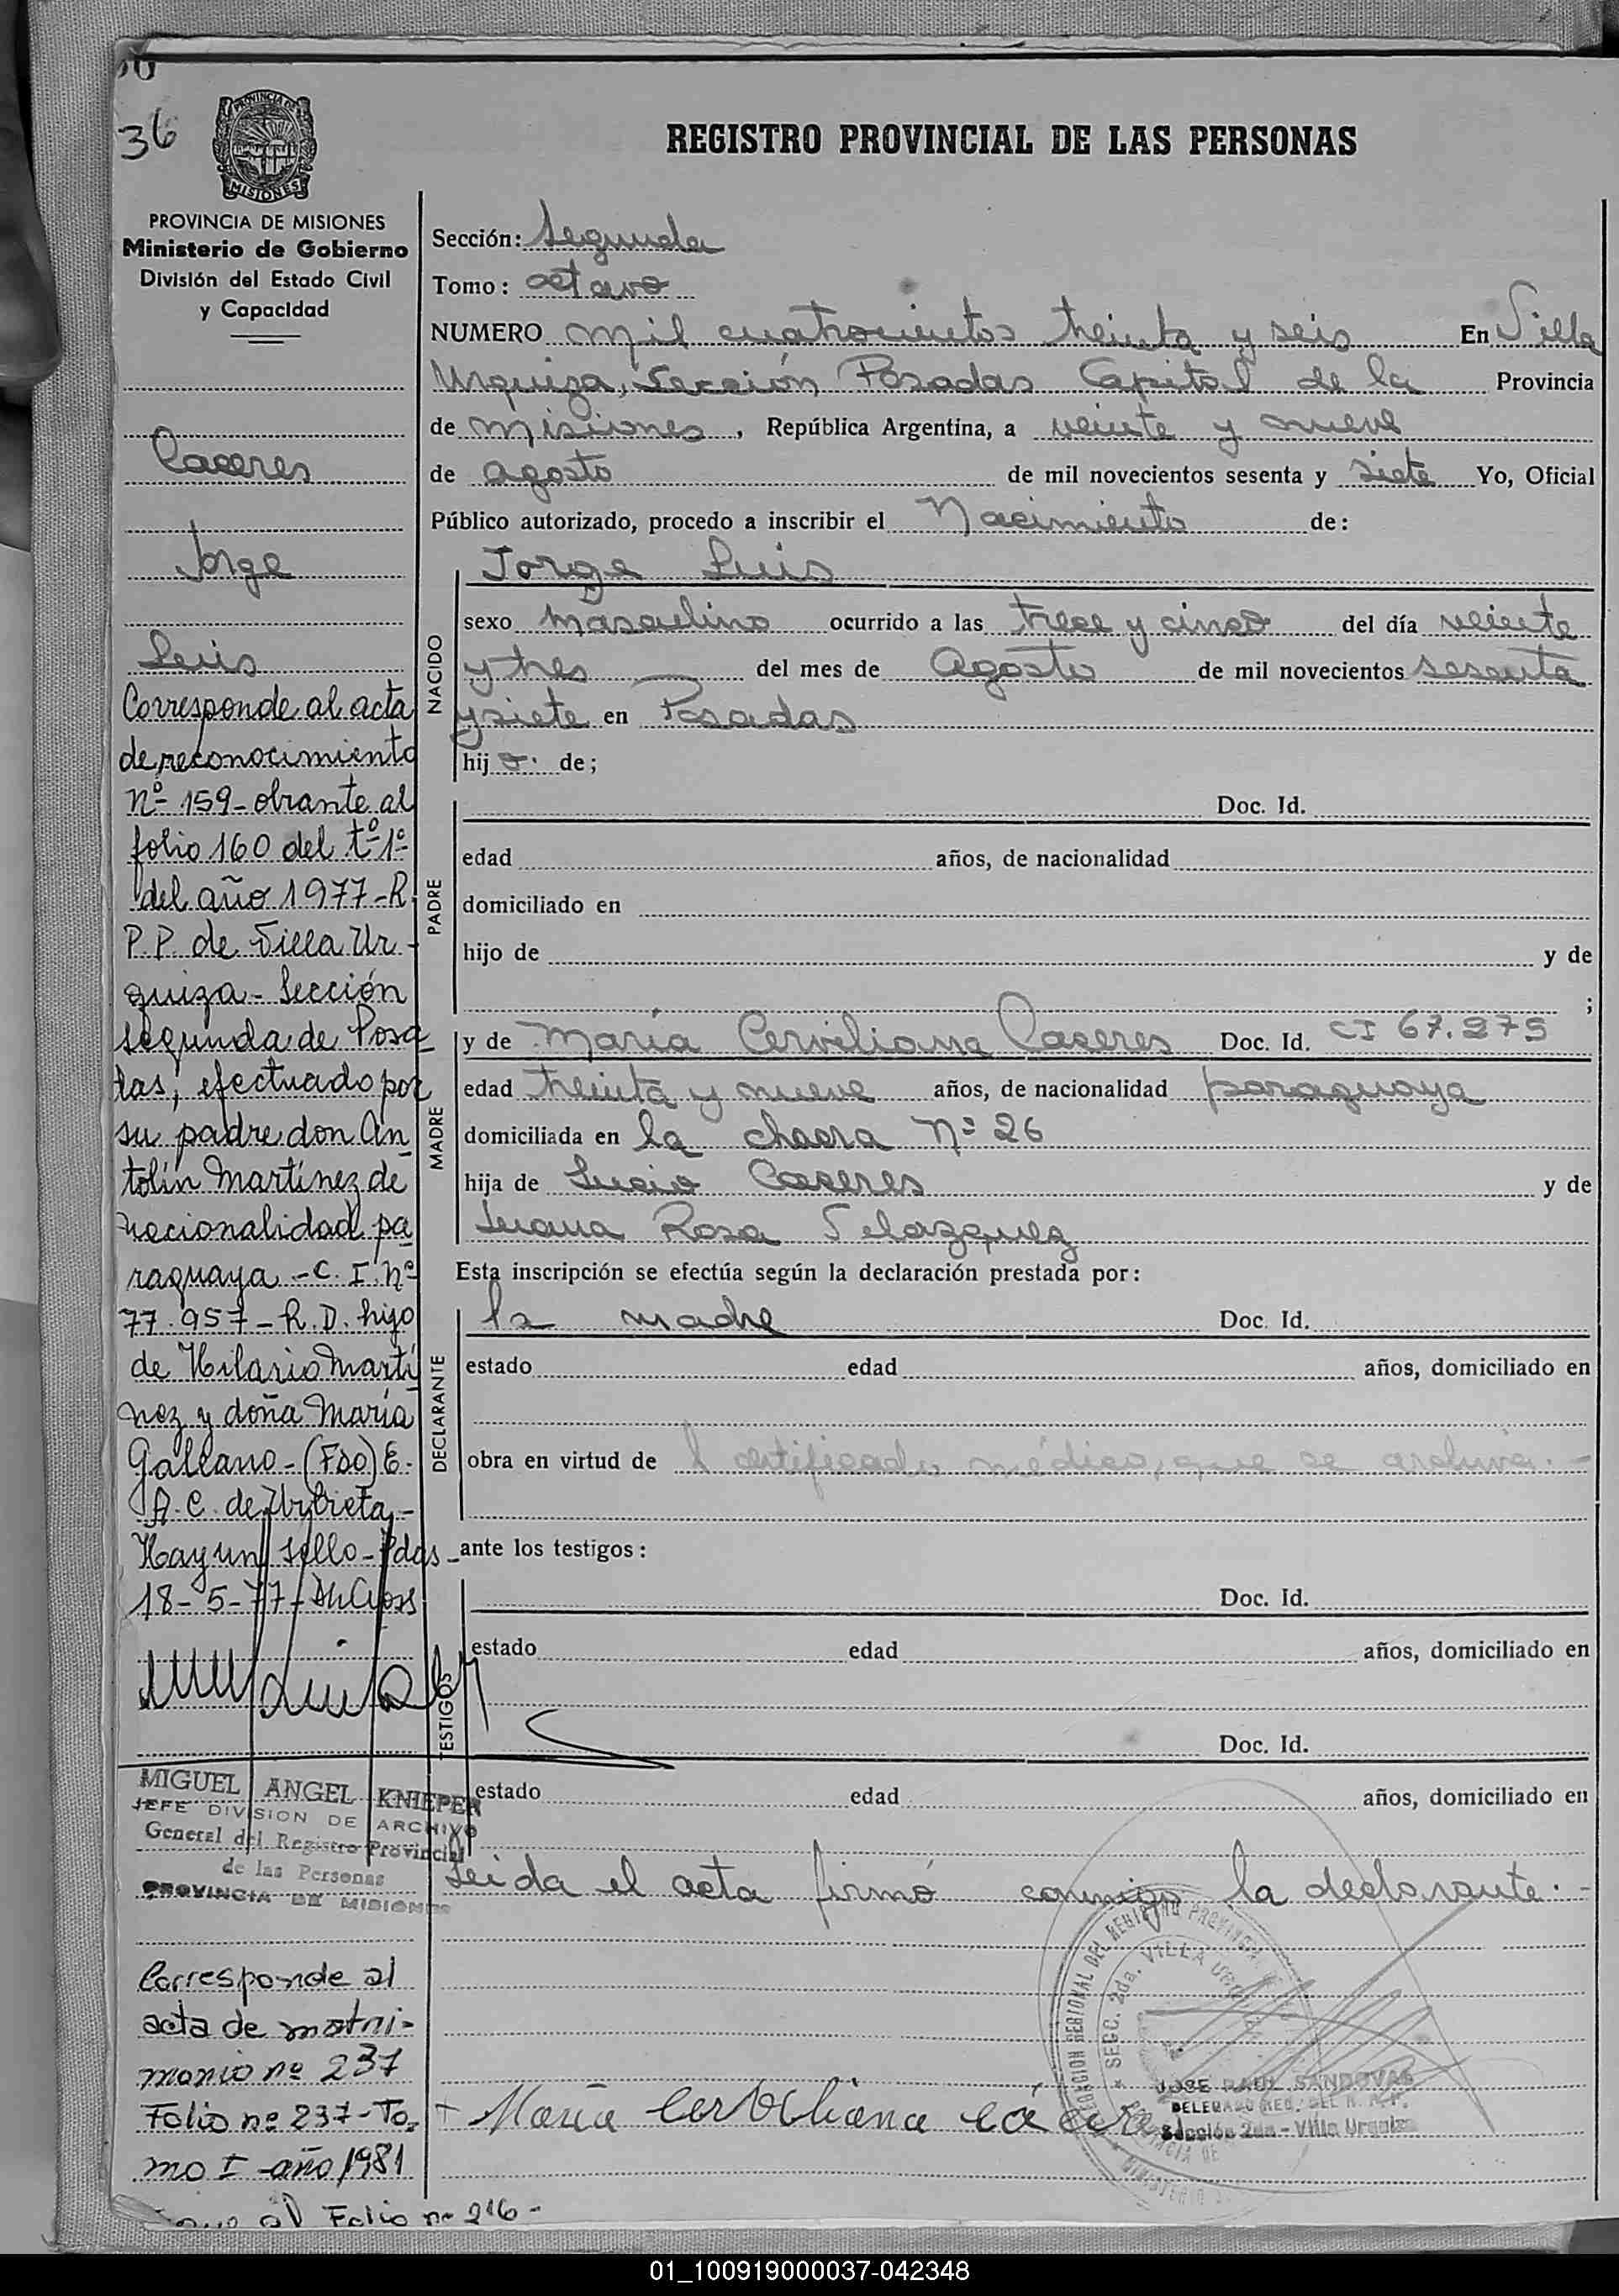 36
PROVINCIA DE
MISIONES
REGISTRO PROVINCIAL DE LAS PERSONAS
PROVINCIA DE MISIONES
Ministerio de Gobierno
División del Estado Civil
y Capacidad
Caceres
Jorge
Luis
Corresponde al acta
de reconocimiento
nº 159 - obrante al
folio 160 del tº 1º
del año 1977 - R.
P.P. de Villa Ur-
quiza - Sección
segunda de Posa
das, efectuado por
su padre don An
tolín Martínez de
nacionalidad pa
raguaya - C. I. nº
77.957 - R.D. hijo
de Hilario Martí
nez y doña María
Galeano - (Fdo) E.
A. C. de Urbieta -
Hay un sello - Pdas -
18 - 5 - 77 -
MIGUEL ANGEL KNIEPER
JEFE DIVISION DE ARCHIVO
General del Registro Provincial
de las Personas
PROVINCIA DE MISIONES
Corresponde al
acta de matri-
monio nº 237
Folio nº 237 - To-
mo I - año 1981
al Folio nº 216 -
Sección: Segunda
Tomo: octavo
NUMERO mil cuatrocientos treinta y seis En Villa
Urquiza, Sección Posadas Capital de la Provincia
de Misiones, República Argentina, a veinte y nueve
de agosto de mil novecientos sesenta y siete Yo, Oficial
Público autorizado, procedo a inscribir el Nacimiento de:
NACIDO
Jorge Luis
sexo masculino ocurrido a las trece y cinco del día veinte
y tres del mes de Agosto de mil novecientos sesenta
y siete en Posadas
hijo. de;
PADRE
Doc. Id.
edad años, de nacionalidad
domiciliado en
hijo de y de
;
MADRE
y de María Cerviliana Caceres Doc. Id. CI 67.275
edad treinta y nueve años, de nacionalidad paraguaya
domiciliada en la chacra Nº 26
hija de Lucio Caceres y de
Juana Rosa Velazquez
Esta inscripción se efectúa según la declaración prestada por:
DECLARANTE
la madre Doc. Id.
estado edad años, domiciliado en
obra en virtud de l certificado médico, que se archiva. -
ante los testigos:
TESTIGOS
Doc. Id.
estado edad años, domiciliado en
Doc. Id.
estado edad años, domiciliado en
Leída el acta firmó conmigo la declarante. -
SECC. 2da. VILLA URQUIZA
JOSE RAUL SANDOVAL
DELEGADO REG. DEL R. P. P.
Sección 2da - Villa Urquiza
+ María
01_100919000037-042348